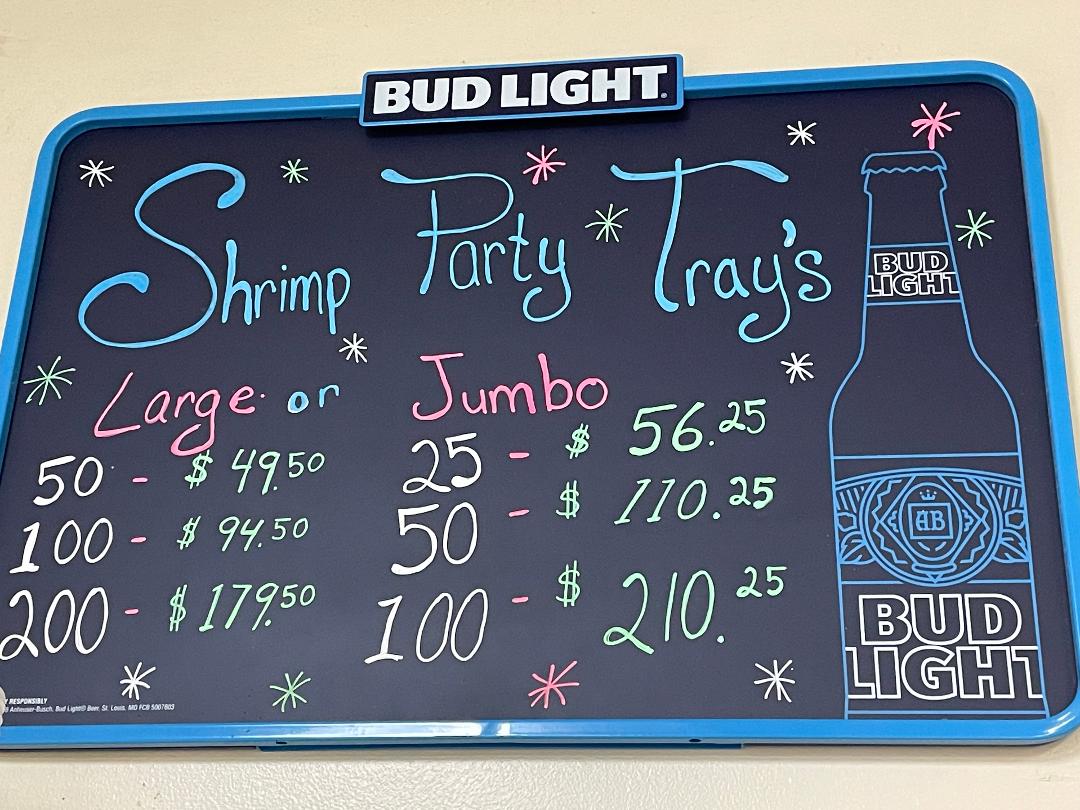 BUD LIGHT
Shrimp Party Tray's
Large or Jumbo
50 - $ 49.50
100 - $ 94.50
200 - $ 179.50
25 - $ 56.25
50 - $ 110.25
100 - $ 210.25
BUD
LIGHT
AB
BUD
LIGHT
RESPONSIBLY
Anheuser-Busch, Bud Light® Beer, St. Louis, MO FCB 5007803